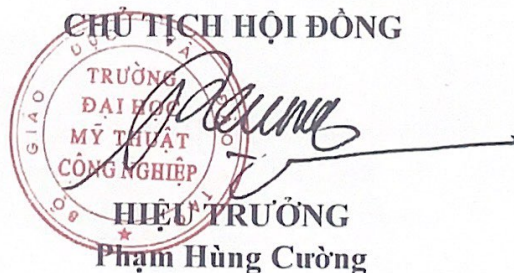 CHỦ TỊCH HỘI ĐỒNG
BỘ GIÁO DỤC VÀ ĐÀO TẠO
TRƯỜNG
ĐẠI HỌC
MỸ THUẬT
CÔNG NGHIỆP
HIỆU TRƯỞNG
Phạm Hùng Cường